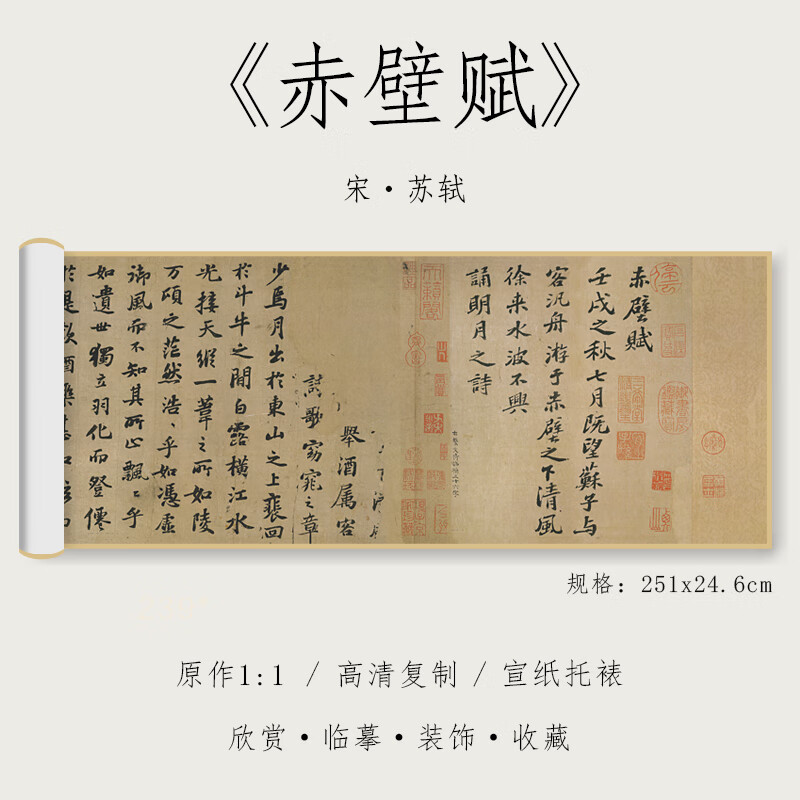 《赤壁赋》
宋·苏轼
赤壁賦
壬戌之秋七月既望蘇子与
客汎舟游于赤壁之下清風
徐来水波不興
誦明月之詩
舉酒属客
詩歌窈窕之章
少焉月出於東山之上裵回
於斗牛之間白露橫江水
光接天縱一葦之所如陵
万頃之茫然浩〻乎如馮虛
御風而不知其所止飄〻乎
如遺世獨立羽化而登僊
於是飲酒樂
规格：251x24.6cm
原作1:1 / 高清复制 / 宣纸托裱
欣赏·临摹·装饰·收藏